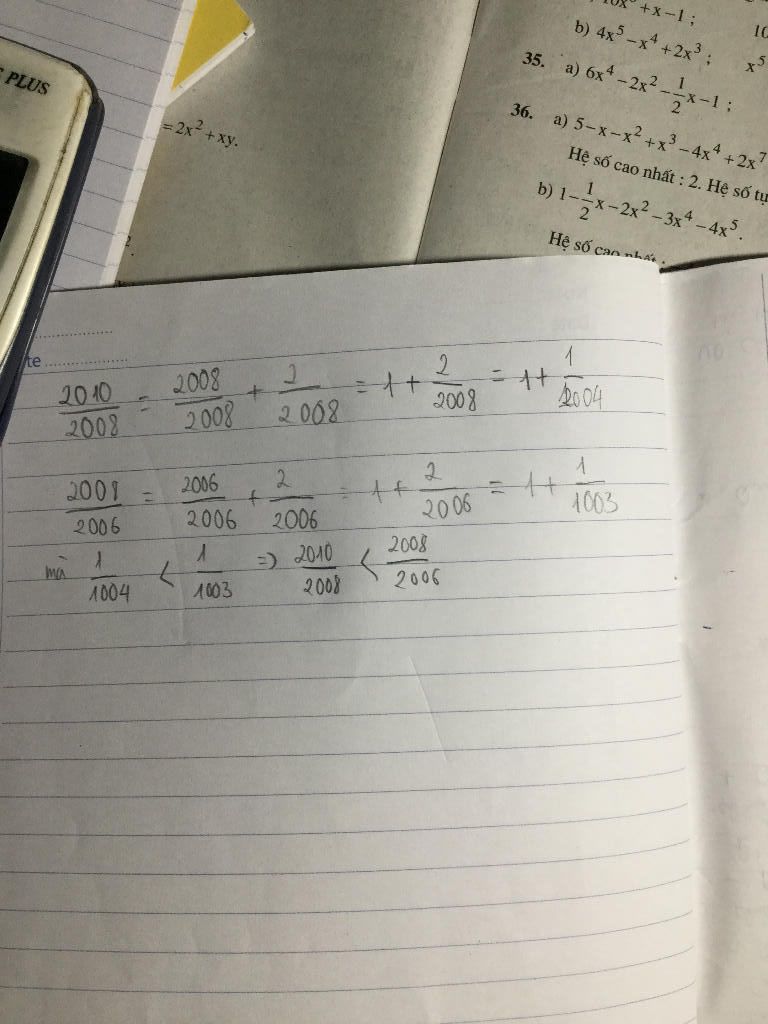 PLUS
= 2x² + xy.
+ x − 1 ;
b) 4x⁵ − x⁴ + 2x³ ; x⁵
35. a) 6x⁴ − 2x² − 1/2 x − 1 ;
36. a) 5 − x − x² + x³ − 4x⁴ + 2x⁷
Hệ số cao nhất : 2. Hệ số tự
b) 1 − 1/2 x − 2x² − 3x⁴ − 4x⁵.
Hệ số cao nhất :
te ....................
2010/2008 = 2008/2008 + 2/2008 = 1 + 2/2008 = 1 + 1/2004
2008/2006 = 2006/2006 + 2/2006 = 1 + 2/2006 = 1 + 1/1003
mà 1/1004 < 1/1003 => 2010/2008 < 2008/2006